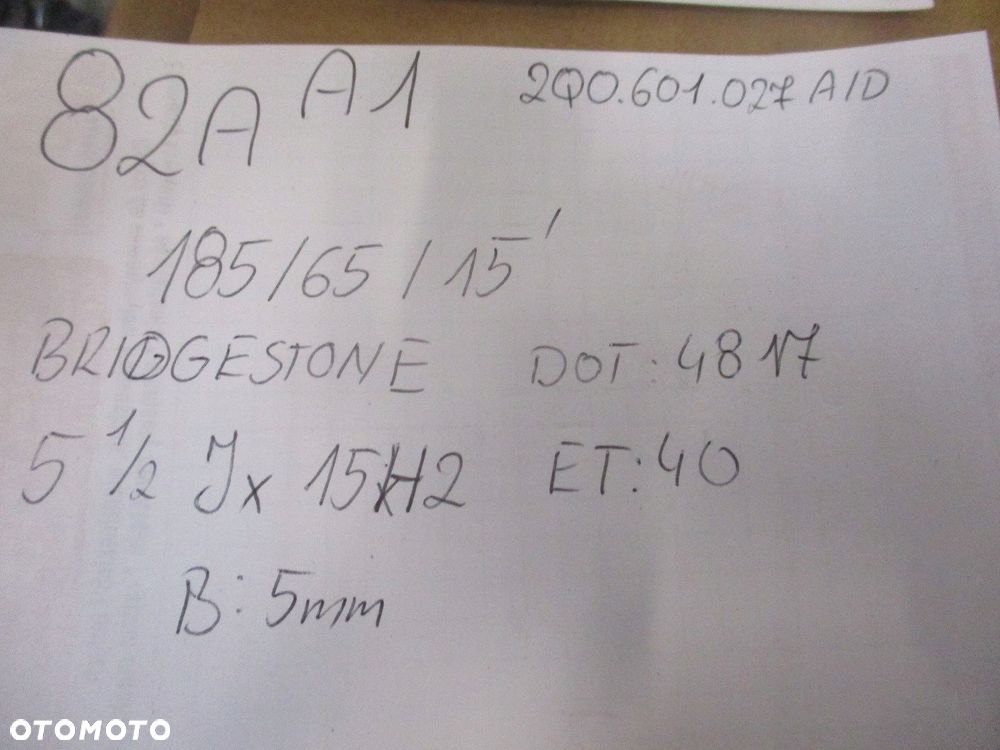 82A A1 2Q0.601.027 A/D
185/65/15'
BRIDGESTONE DOT: 4817
5 1/2 Jx 15xH2 ET: 40
B: 5mm
OTOMOTO